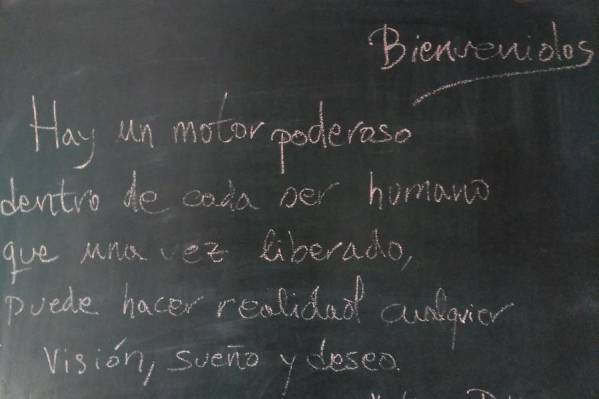 Bienvenidos
Hay un motor poderoso
dentro de cada ser humano
que una vez liberado,
puede hacer realidad cualquier
visión, sueño y deseo.